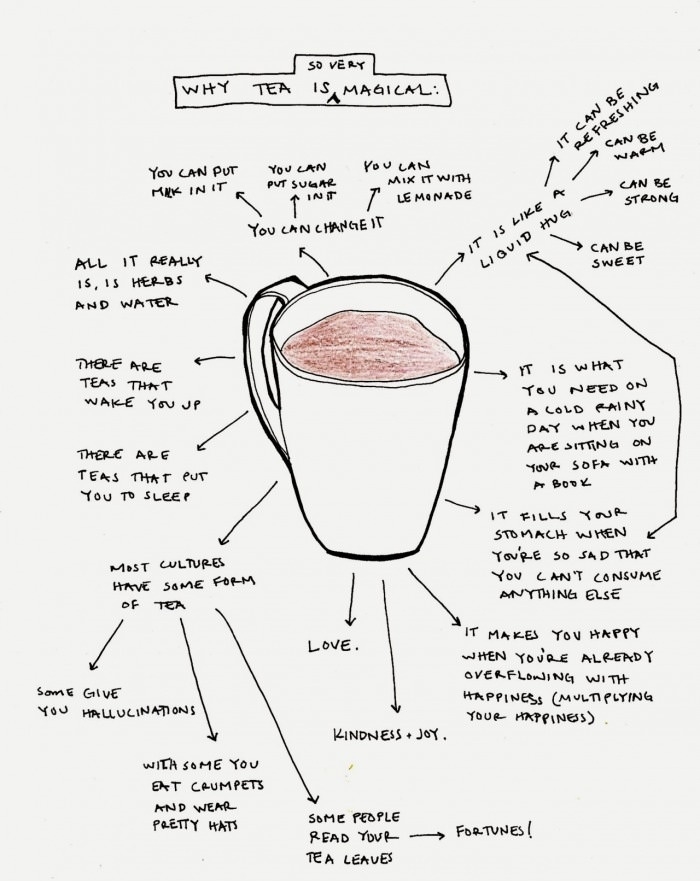 SO VERY
WHY TEA IS MAGICAL:
YOU CAN PUT
MILK IN IT
YOU CAN
PUT SUGAR
IN IT
YOU CAN
MIX IT WITH
LEMONADE
YOU CAN CHANGE IT
IT CAN BE
REFRESHING
CAN BE
WARM
CAN BE
STRONG
CAN BE
SWEET
IT IS LIKE A
LIQUID HUG
ALL IT REALLY
IS, IS HERBS
AND WATER
THERE ARE
TEAS THAT
WAKE YOU UP
THERE ARE
TEAS THAT PUT
YOU TO SLEEP
IT IS WHAT
YOU NEED ON
A COLD RAINY
DAY WHEN YOU
ARE SITTING ON
YOUR SOFA WITH
A BOOK
IT FILLS YOUR
STOMACH WHEN
YOU'RE SO SAD THAT
YOU CAN'T CONSUME
ANYTHING ELSE
MOST CULTURES
HAVE SOME FORM
OF TEA
LOVE.
IT MAKES YOU HAPPY
WHEN YOU'RE ALREADY
OVERFLOWING WITH
HAPPINESS (MULTIPLYING
YOUR HAPPINESS)
SOME GIVE
YOU HALLUCINATIONS
KINDNESS + JOY.
WITH SOME YOU
EAT CRUMPETS
AND WEAR
PRETTY HATS
SOME PEOPLE
READ YOUR
TEA LEAVES
FORTUNES!